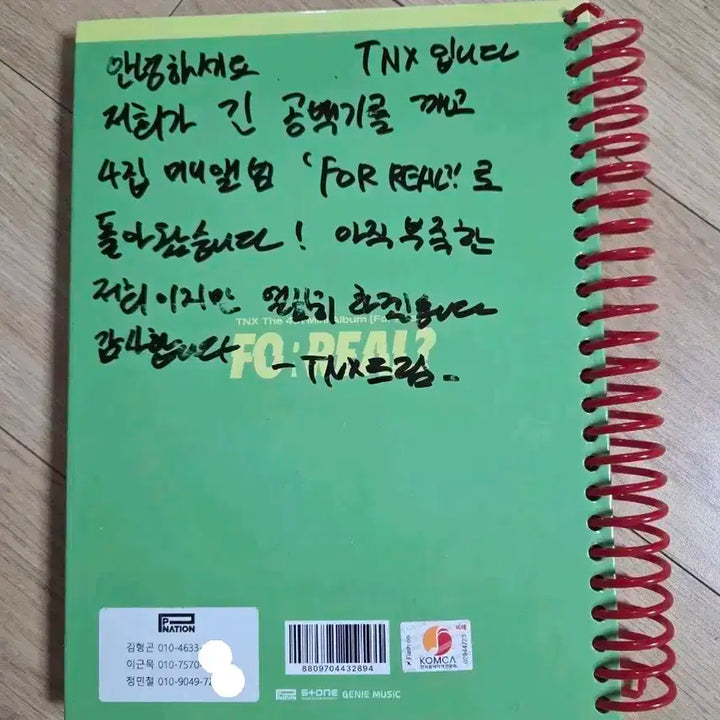 안녕하세요 TNX 입니다
저희가 긴 공백기를 깨고
4집 미니앨범 'FOR REAL?' 로
돌아왔습니다! 아직 부족한
저희이지만 열심히 하겠습니다
감사합니다
- TNX드림.
TNX The 4th Mini Album [For
FOR REAL?
P NATION
김형곤 010-4633
이근욱 010-7570
정민철 010-9049-72
8809704432894
P NATION STONE GENIE MUSIC
KOMCA